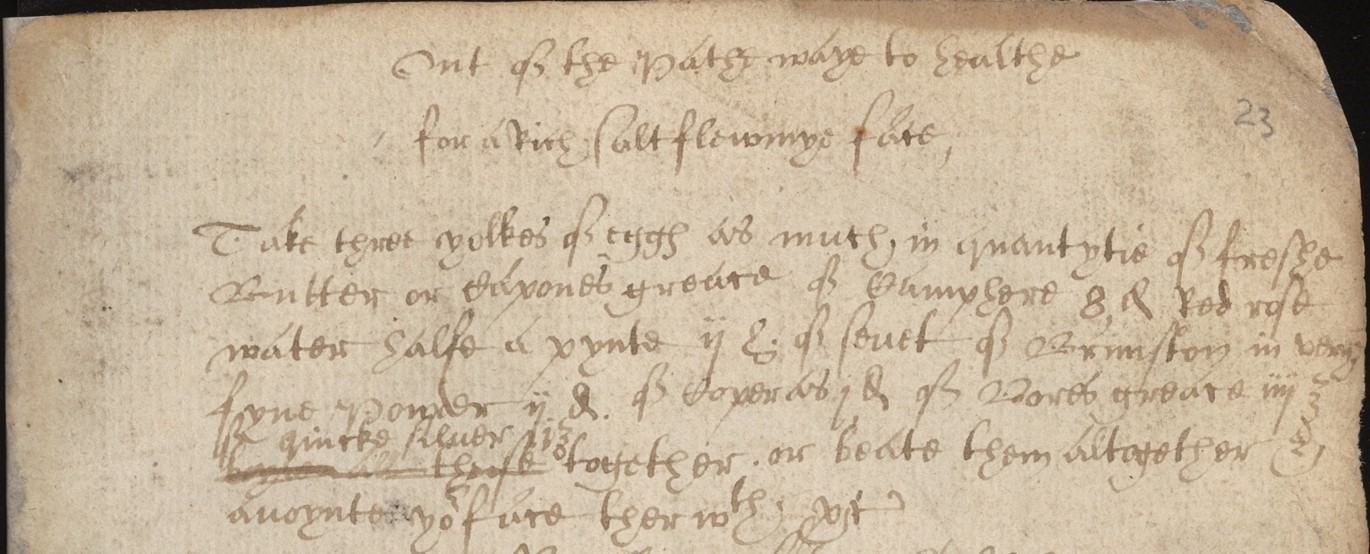 Out of the Pathe waye to healthe
23
for a Rich saltflewmye face,
Take three yolkes of eggs as much, in quantytie of freshe
Butter or Capones greace of Camphere 8 d Red rose
water halfe a pynte ij of seuet of Brimston in very
fyne Powder ij d. of Coperas j d of Bores greace iiij ʒ
of quicke siluer ij ʒ
these together. or beate them altogether &
anoynte yor face therwth,